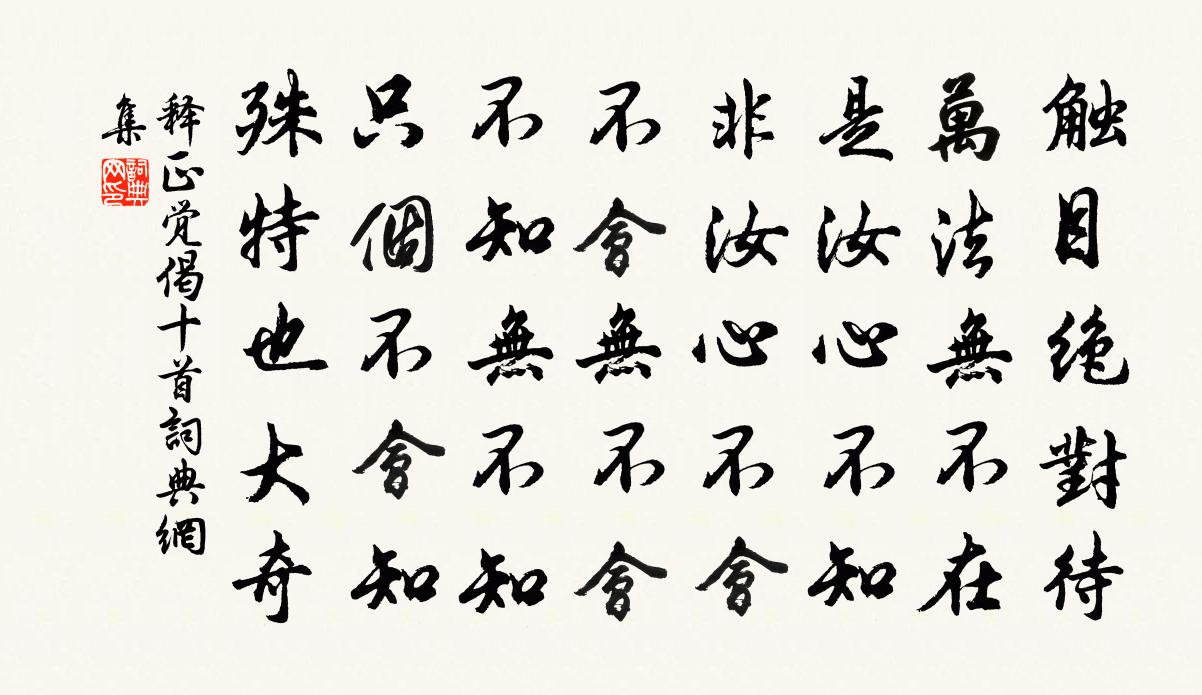 触目绝對待
萬法無不在
是汝心不知
非汝心不會
不會無不會
不知無不知
只個不會知
殊特也大奇
释正觉偈十首詞典網
集
詞典網印